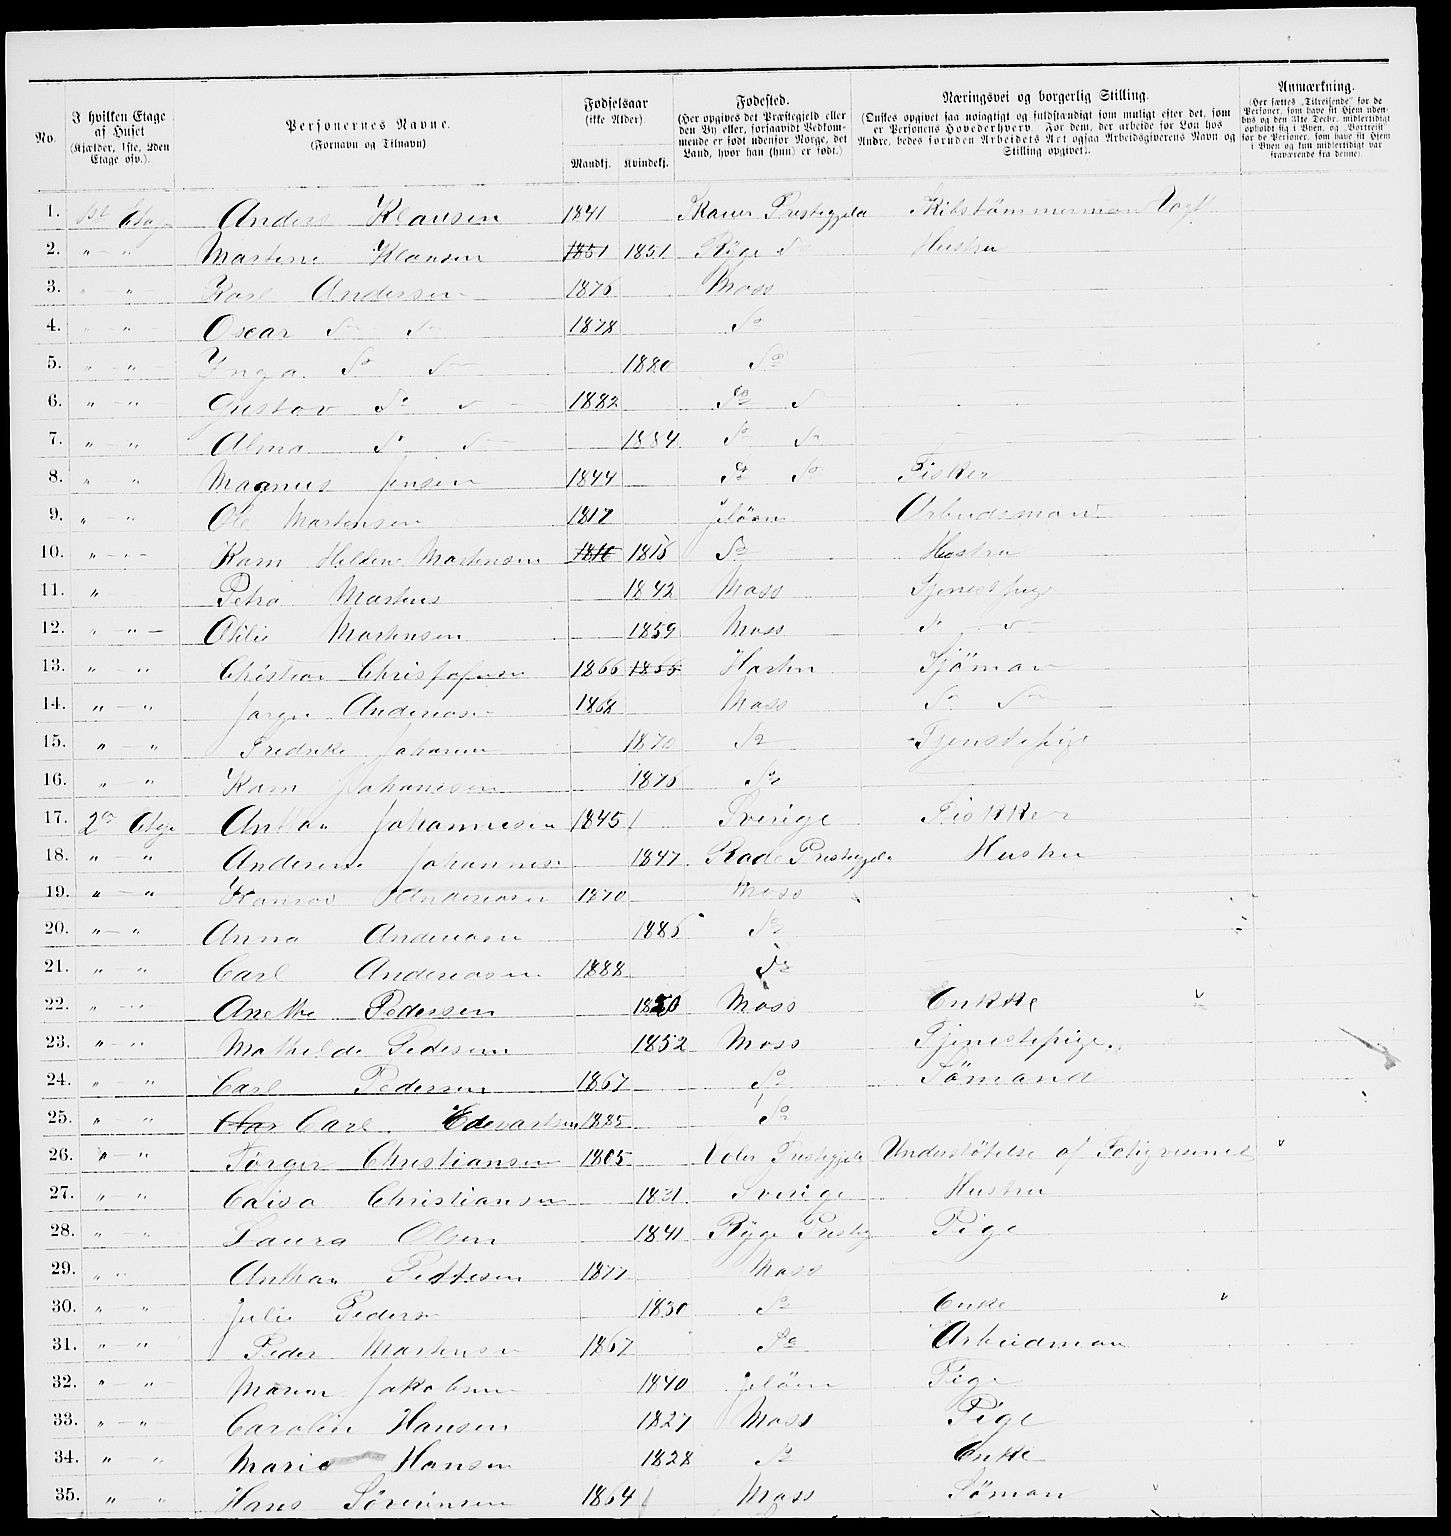 No. | I hvilken Etage af Huset (Kjælder, 1ste, 2den Etage osv.). | Personernes Navne. (Fornavn og Tilnavn) | Fødselsaar (ikke Alder). Mandkj. | Kvindekj. | Fødested. (Her opgives det Præstegjeld eller den By eller, forsaavidt Vedkommende er født udenfor Norge, det Land, hvor han (hun) er født.) | Næringsvei og borgerlig Stilling. (Ønskes opgivet saa nøiagtigt og fuldstændigt som muligt efter det, som er Personens Hovederhverv. For dem, der arbeide for Løn hos Andre, bedes foruden Arbeidets Art ogsaa Arbeidsgiverens Navn og Stilling opgivet). | Anmærkning. (Her sættes „Tilreisende" for de Personer, som have sit Hjem udenbys og den 31te Decbr. midlertidigt opholdt sig i Byen, og „Bortreist" for de Personer, som have sit Hjem i Byen og kun midlertidigt var fraværende fra denne).
1. 1st Etage Anders Klausen 1841 Prestegjeld Skibstømmerman
2. " " Martine Klausen 1851 1851 Ryge do Hustru
3. " " Karl Andersen 1876 Moss
4. " " Oscar do do 1878 do
5. " " Inga do do 1880 do
6. " " Gustav do do 1882 do do
7. " " Alma do do 1884 do do
8. " " Magnus Jensen 1844 do do Fisker
9. " " Ole Martensen 1817 Jeløen Arbeidsmand
10. " " Karn Martensen 1816 1815 do Hustru
11. " Petra Martens 1842 Moss Tjenestpige
12. " " Otilie Martensen 1859 Moss do do
13. " " Christian Christofersen 1866 1866 Sjöman
14. " " Jorgen Andreasen 1868 Moss do do
15. " " Fredrike Johanne 1870 do Tjenstepige
16. " " Karn Johanesen 1876 do
17. 2den Etage Anthon Johannesen 1845 Sverige Fiskker
18. " " Anderine Johannesen 1847 Rade Prestegjeld Hustru
19. " " Andreasen 1870 Moss
20. " " Anna Andreasen 1886 do
21. " " Carl Andreasen 1888 do
22. " " Anethe Pedersen Moss Enkke
23. " " Mathilde Pedersen 1852 Moss Tjenestepige
24. " " Carl Pedersen 1867 do Sömand
25. " " Carl Edevartsen 1885 do
26. " " Törger Christiansen 1805 Prestegjeld Understötelse af Fatigvesenet
27. " " Caisa Christiansen 1831 Sverige Hustru
28. " " Laura Olsen 1841 Ryge Presteg Pige
29. " " Anthon Pettesen 1877 Moss
30. " " Julie Peders 1830 do Enke
31. " " Peder Martensen 1867 do Arbeidman
32. " " Maren Jakobsen 1840 Jeløen Pige
33. " " Carolin Hansen 1827 Moss Pige
34. " " Marie Hansen 1828 do Enke
35. " " Hans Sörensen 1864 Moss Söman